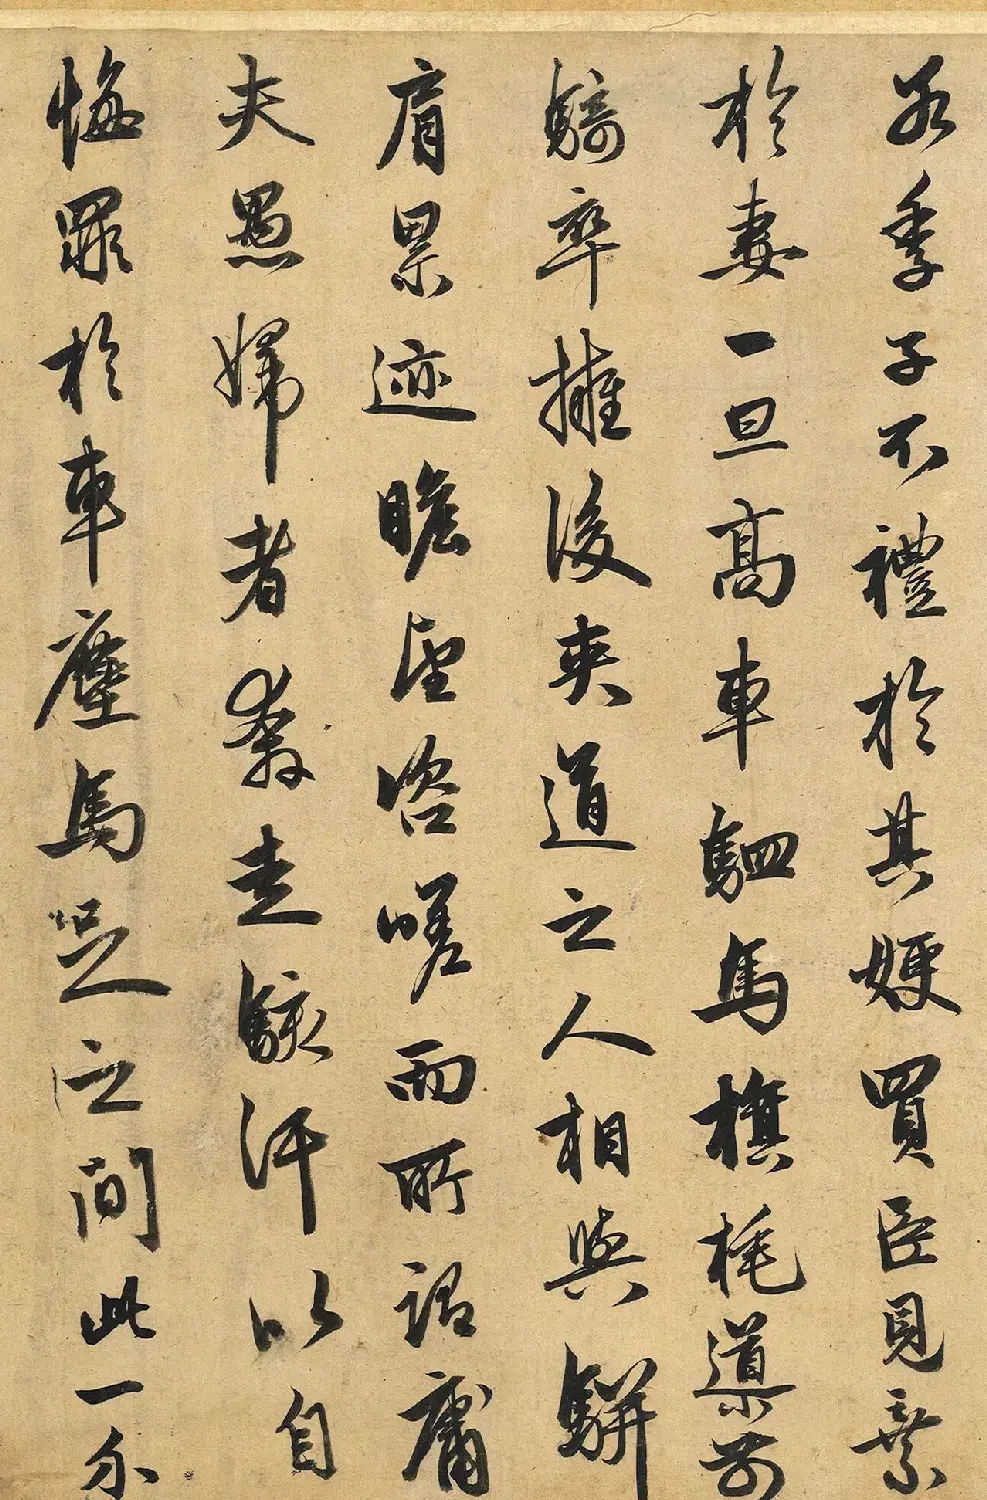 若季子不禮於其嫂買臣見棄
於妻一旦高車駟馬旗旄導前
騎卒擁後夾道之人相與駢
肩累迹瞻望咨嗟而所謂庸
夫愚婦者奔走駭汗以自
悔罪於車塵馬足之間此一介